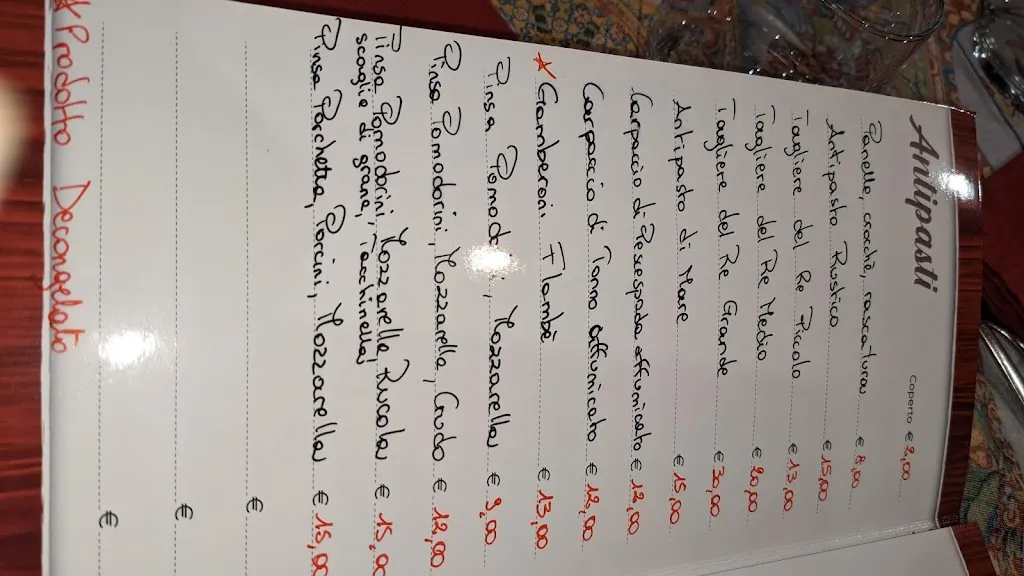 Antipasti
Coperto € 2,00
Panelle, crocchè, rascatura € 8,00
Antipasto Rustico € 15,00
Tagliere del Re Piccolo € 13,00
Tagliere del Re Medio € 20,00
Tagliere del Re Grande € 30,00
Antipasto di Mare € 15,00
Carpaccio di Pescespada affumicato € 12,00
Carpaccio di Tonno affumicato € 12,00
* Gamberoni Flambè € 13,00
Pinsa Pomodori, Mozzarella € 9,00
Pinsa Pomodorini, Mozzarella, Crudo € 12,00
Pinsa Pomodorini, Mozzarella, Rucola € 15,00
scaglie di grana, Tacchinella
Pinsa Porchetta, Porcini, Mozzarella € 15,00
€
€
€
* Prodotto Decongelato